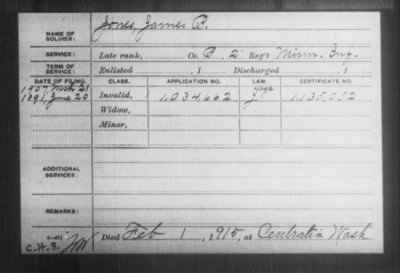 NAME OF SOLDIER: Jones, James B.
SERVICE: Late rank, Co. B, 2" Reg't Minn. Inf.
TERM OF SERVICE: Enlisted , 1 Discharged , 1
DATE OF FILING. CLASS. APPLICATION NO. LAW. CERTIFICATE NO.
1907 Mch 21
1891, June 20 Invalid, 1,034,662 J. 1,135,052
Widow,
Minor,
ADDITIONAL SERVICES:
REMARKS:
Died Feb 1, 1915, at Centralia Wash